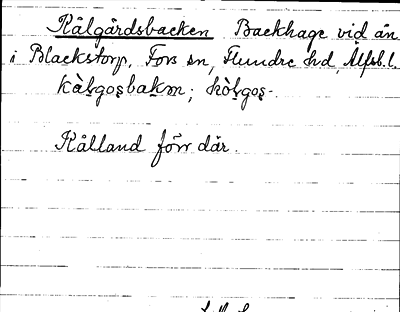 Kålgårdsbacken Backhage vid ån
i Blackstorp, Fors sn, Flundre hd, Älfsb. l.
kàlgosbakm; kòlgos-.
Kålland förr där.